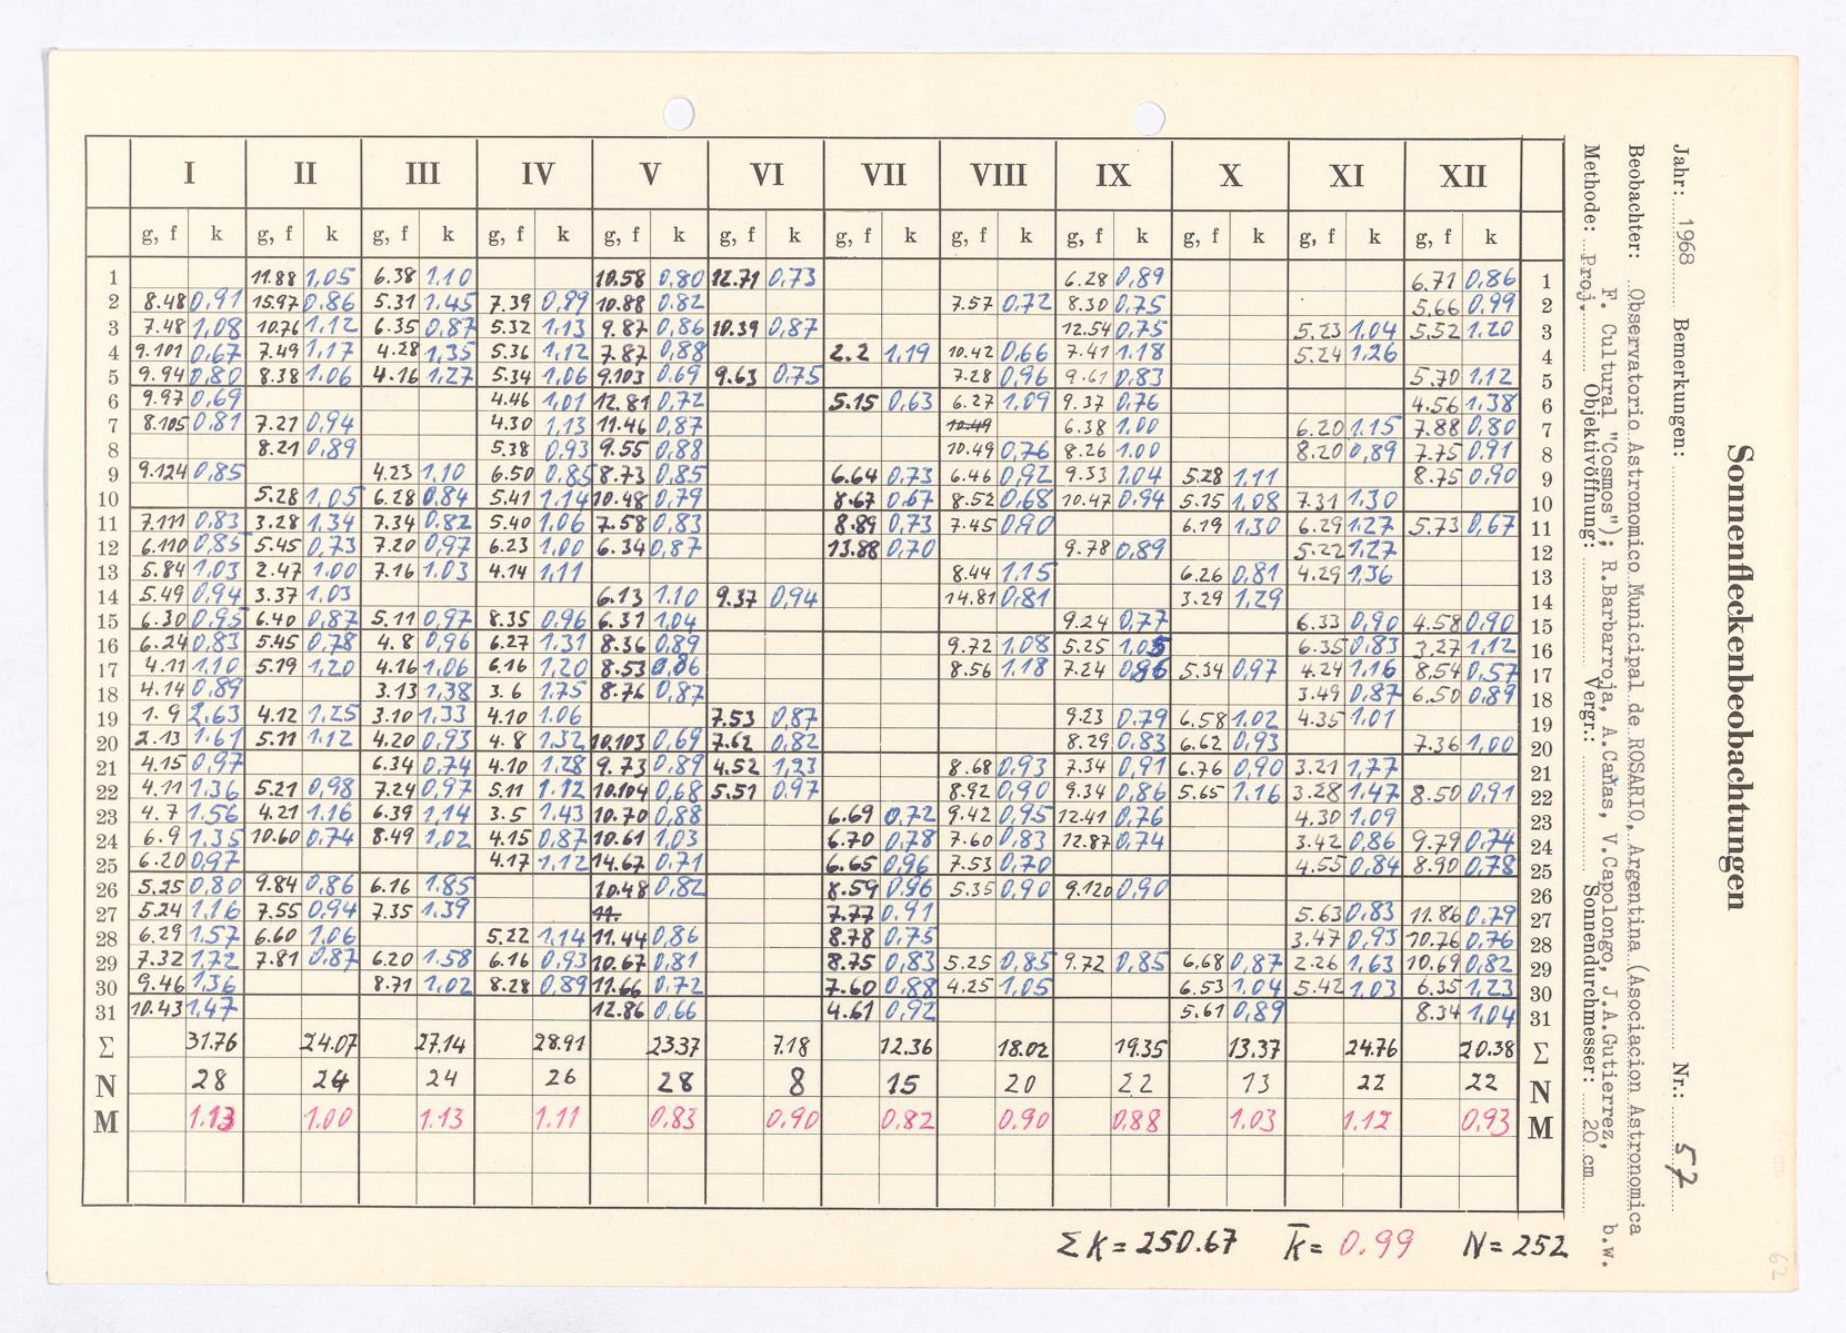 Sonnenfleckenbeobachtungen
Jahr: 1968 Bemerkungen: Nr.: 57
Beobachter: Observatorio Astronomico Municipal de ROSARIO, Argentina (Asociacion Astronomica
F. Cultural "Cosmos"); R.Barbarroja, A.Cañas, V.Capolongo, J.A.Gutierrez, b.w.
Methode: Proj. Objektivöffnung: Vergr.: Sonnendurchmesser: 20 cm
I II III IV V VI VII VIII IX X XI XII
g, f k g, f k g, f k g, f k g, f k g, f k g, f k g, f k g, f k g, f k g, f k g, f k
1 11.88 1,05 6.38 1.10 10.58 0,80 12.71 0,73 6.28 0,89 6.71 0,86 1
2 8.48 0,91 15.97 0,86 5.31 1.45 7.39 0,99 10.88 0.82 7.57 0,72 8.30 0,75 5.66 0,99 2
3 7.48 1,08 10.76 1,12 6.35 0,87 5.32 1.13 9.87 0,86 10.39 0,87 12.54 0,75 5.23 1.04 5,52 1.20 3
4 9.101 0,67 7.49 1,17 4.28 1,35 5.36 1,12 7.87 0,88 2.2 1,19 10.42 0,66 7.41 1.18 5.24 1,26 4
5 9.94 0,80 8.38 1.06 4.16 1,27 5.34 1,06 9.103 0.69 9.63 0,75 7.28 0,96 9.61 0,83 5.70 1,12 5
6 9.97 0,69 4.46 1,01 12.81 0,72 5.15 0,63 6.27 1,09 9.37 0,76 4.56 1,38 6
7 8.105 0,81 7.27 0,94 4.30 1,13 11.46 0,87 10.49 6.38 1,00 6.20 1.15 7.88 0,80 7
8 8.21 0,89 5.38 0,93 9.55 0,88 10.49 0,76 8.26 1.00 8.20 0,89 7.75 0,91 8
9 9.124 0,85 4.23 1,10 6.50 0,85 8.73 0,85 6.64 0,73 6.46 0,92 9.33 1,04 5.28 1,11 8.75 0,90 9
10 5.28 1,05 6.28 0,84 5.41 1,14 10.48 0,79 8.67 0,67 8.52 0,68 10.47 0,94 5.15 1,08 7.31 1,30 10
11 7.111 0,83 3.28 1,34 7.34 0,82 5.40 1,06 7.58 0,83 8.89 0,73 7.45 0,90 6.19 1,30 6.29 1,27 5.73 0,67 11
12 6.110 0,85 5.45 0,73 7.20 0,97 6.23 1,00 6.34 0,87 13.88 0,70 9.78 0,89 5.22 1,27 12
13 5.84 1,03 2.47 1.00 7.16 1.03 4.14 1,11 8.44 1,15 6.26 0,81 4.29 1,36 13
14 5.49 0,94 3.37 1.03 6.13 1.10 9.37 0,94 14.81 0,81 3.29 1,29 14
15 6.30 0,95 6.40 0,87 5.11 0,97 8.35 0,96 6.31 1,04 9.24 0,77 6.33 0,90 4.58 0,90 15
16 6.24 0,83 5.45 0,78 4.8 0,96 6.27 1.31 8.36 0,89 9.72 1,08 5.25 1,05 6.35 0,83 3.27 1,12 16
17 4.11 1,10 5.19 1,20 4.16 1,06 6.16 1,20 8.53 0,86 8.56 1.18 7.24 0,96 5.34 0,97 4.24 1,16 8,54 0,57 17
18 4.14 0,89 3.13 1,38 3.6 1.75 8.76 0,87 3.49 0,87 6,50 0,89 18
19 1.9 2,63 4.12 1,25 3.10 1,33 4.10 1.06 7.53 0,87 9.23 0.79 6.58 1.02 4.35 1,01 19
20 2.13 1.61 5.11 1.12 4.20 0,93 4.8 1.32 10.103 0,69 7.62 0,82 8.29 0,83 6.62 0,93 7.36 1,00 20
21 4.15 0,97 6.34 0,74 4.10 1,28 9.73 0,89 4.52 1,23 8.68 0,93 7.34 0,91 6.76 0,90 3.21 1,77 21
22 4.11 1.36 5.21 0,98 7.24 0,97 5.11 1.12 10.104 0,68 5.51 0.97 8.92 0,90 9.34 0,86 5.65 1.16 3.28 1,47 8.50 0,91 22
23 4.7 1.56 4.21 1.16 6.39 1,14 3.5 1.43 10.70 0,88 6.69 0,72 9.42 0,95 12.41 0,76 4.30 1.09 23
24 6.9 1.35 10.60 0,74 8.49 1,02 4.15 0,87 10.61 1,03 6.70 0,78 7.60 0,83 12.87 0,74 3.42 0,86 9.79 0,74 24
25 6.20 0,97 4.17 1,12 14.67 0,71 6.65 0,96 7.53 0,70 4.55 0,84 8.90 0,78 25
26 5.25 0,80 9.84 0,86 6.16 1.85 10.48 0,82 8.59 0,96 5.35 0,90 9.120 0,90 26
27 5.24 1,16 7.55 0,94 7.35 1.39 11. 7.77 0.91 5.63 0,83 11.86 0,79 27
28 6.29 1.57 6.60 1,06 5.22 1,14 11.44 0,86 8.78 0,75 3.47 0,93 10.76 0,76 28
29 7.32 1,72 7.81 0,87 6.20 1.58 6.16 0,93 10.67 0,81 8.75 0,83 5.25 0,85 9.72 0,85 6,68 0,87 2.26 1,63 10.69 0,82 29
30 9.46 1,36 8.71 1,02 8.28 0,89 11.66 0,72 7.60 0,88 4.25 1,05 6.53 1,04 5.42 1,03 6.35 1,23 30
31 10.43 1,47 12.86 0,66 4.61 0,92 5.61 0,89 8.34 1,04 31
Σ 31.76 24.07 27.14 28.91 23.37 7.18 12.36 18.02 19.35 13.37 24.76 20.38 Σ
N 28 24 24 26 28 8 15 20 22 13 22 22 N
M 1.13 1.00 1.13 1.11 0.83 0.90 0.82 0.90 0.88 1.03 1.12 0.93 M
Σ K = 250.67 k̅ = 0.99 N = 252
62